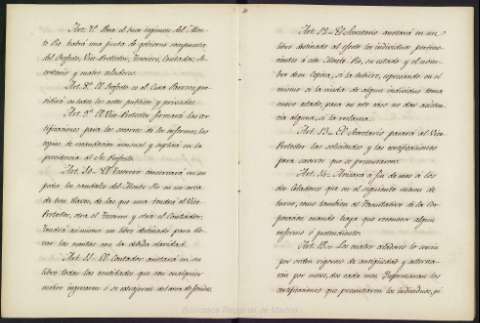 Art. 7º Para el buen regimen del Mon-
te Pio habrá una junta de gobierno compuesta
del Prefecto, Vice-Protector, Tesorero, Contador, Se-
cretario y cuatro celadores.
Art. 8º El Prefecto es el Cura Parroco, pre-
sidirá en todos los actos publicos y privados.
Art. 9º El Vice-Protector firmará las cer-
tificaciones para los socorros de los enfermos, las
copias de mensual y suplirá en la
presidencia al Sr. Prefecto.
Art. 10. El Tesorero conservará en su
poder los caudales del Monte Pio en un arca
de tres llaves, de las que una tendrá el Vice-
Protector, otra el Tesorero y otra el Contador:
Tendrá asimismo un libro destinado para lle-
var las cuentas con la debida claridad.
Art. 11. El Contador anotará en un
libro todas las cantidades que con cualquier
motivo ingresaren ó se estrajeren del arca de fondos.
Art. 12. El Secretario anotará en un
libro destinado al efecto los individuos pertene-
cientes á este Monte Pio, su estado y el nom-
bre de su Esposa, si la tubiere, espresando en el
mismo si la viuda de algun individuo toma
nuevo estado, para en este caso no dar asisten-
cia alguna, si la reclama.
Art. 13. El Secretario pasará al Vice-
Protector las solicitudes y las certificaciones
para socorros que se presentaren.
Art. 14. Avisará á fin de mes á los
dos Celadores que en el siguiente entren de
turno, como tambien al Facultativo de la Cor-
poracion cuando haya que reconocer algun
enfermo ó pretendiente.
Art. 15. Los cuatro celadores lo serán
por orden rigoroso de antigüedad y alterna-
rán por meses, dos cada uno. las
certificaciones que presentaren los individuos, si
Biblioteca Regional de Madrid